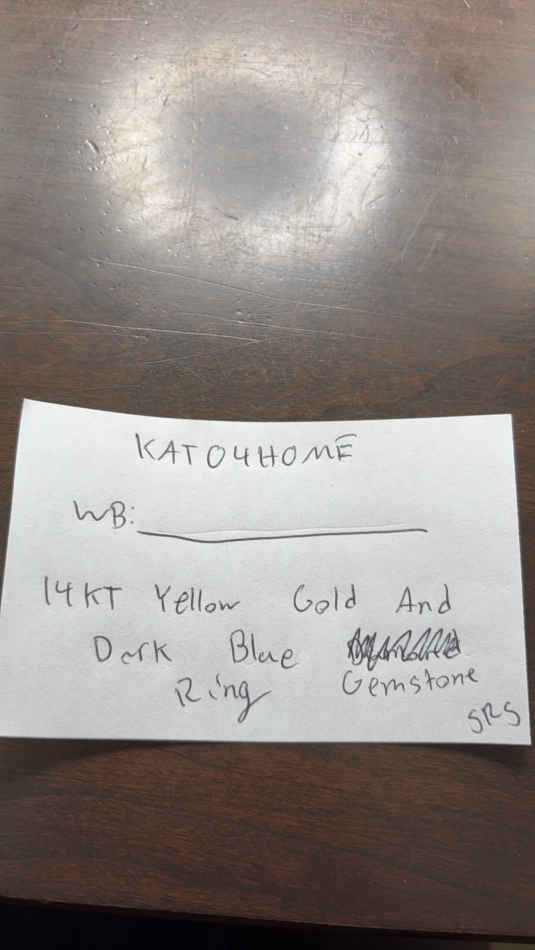 KATO4HOME
WB:
14KT Yellow Gold And
Dark Blue
Ring Gemstone
SRS